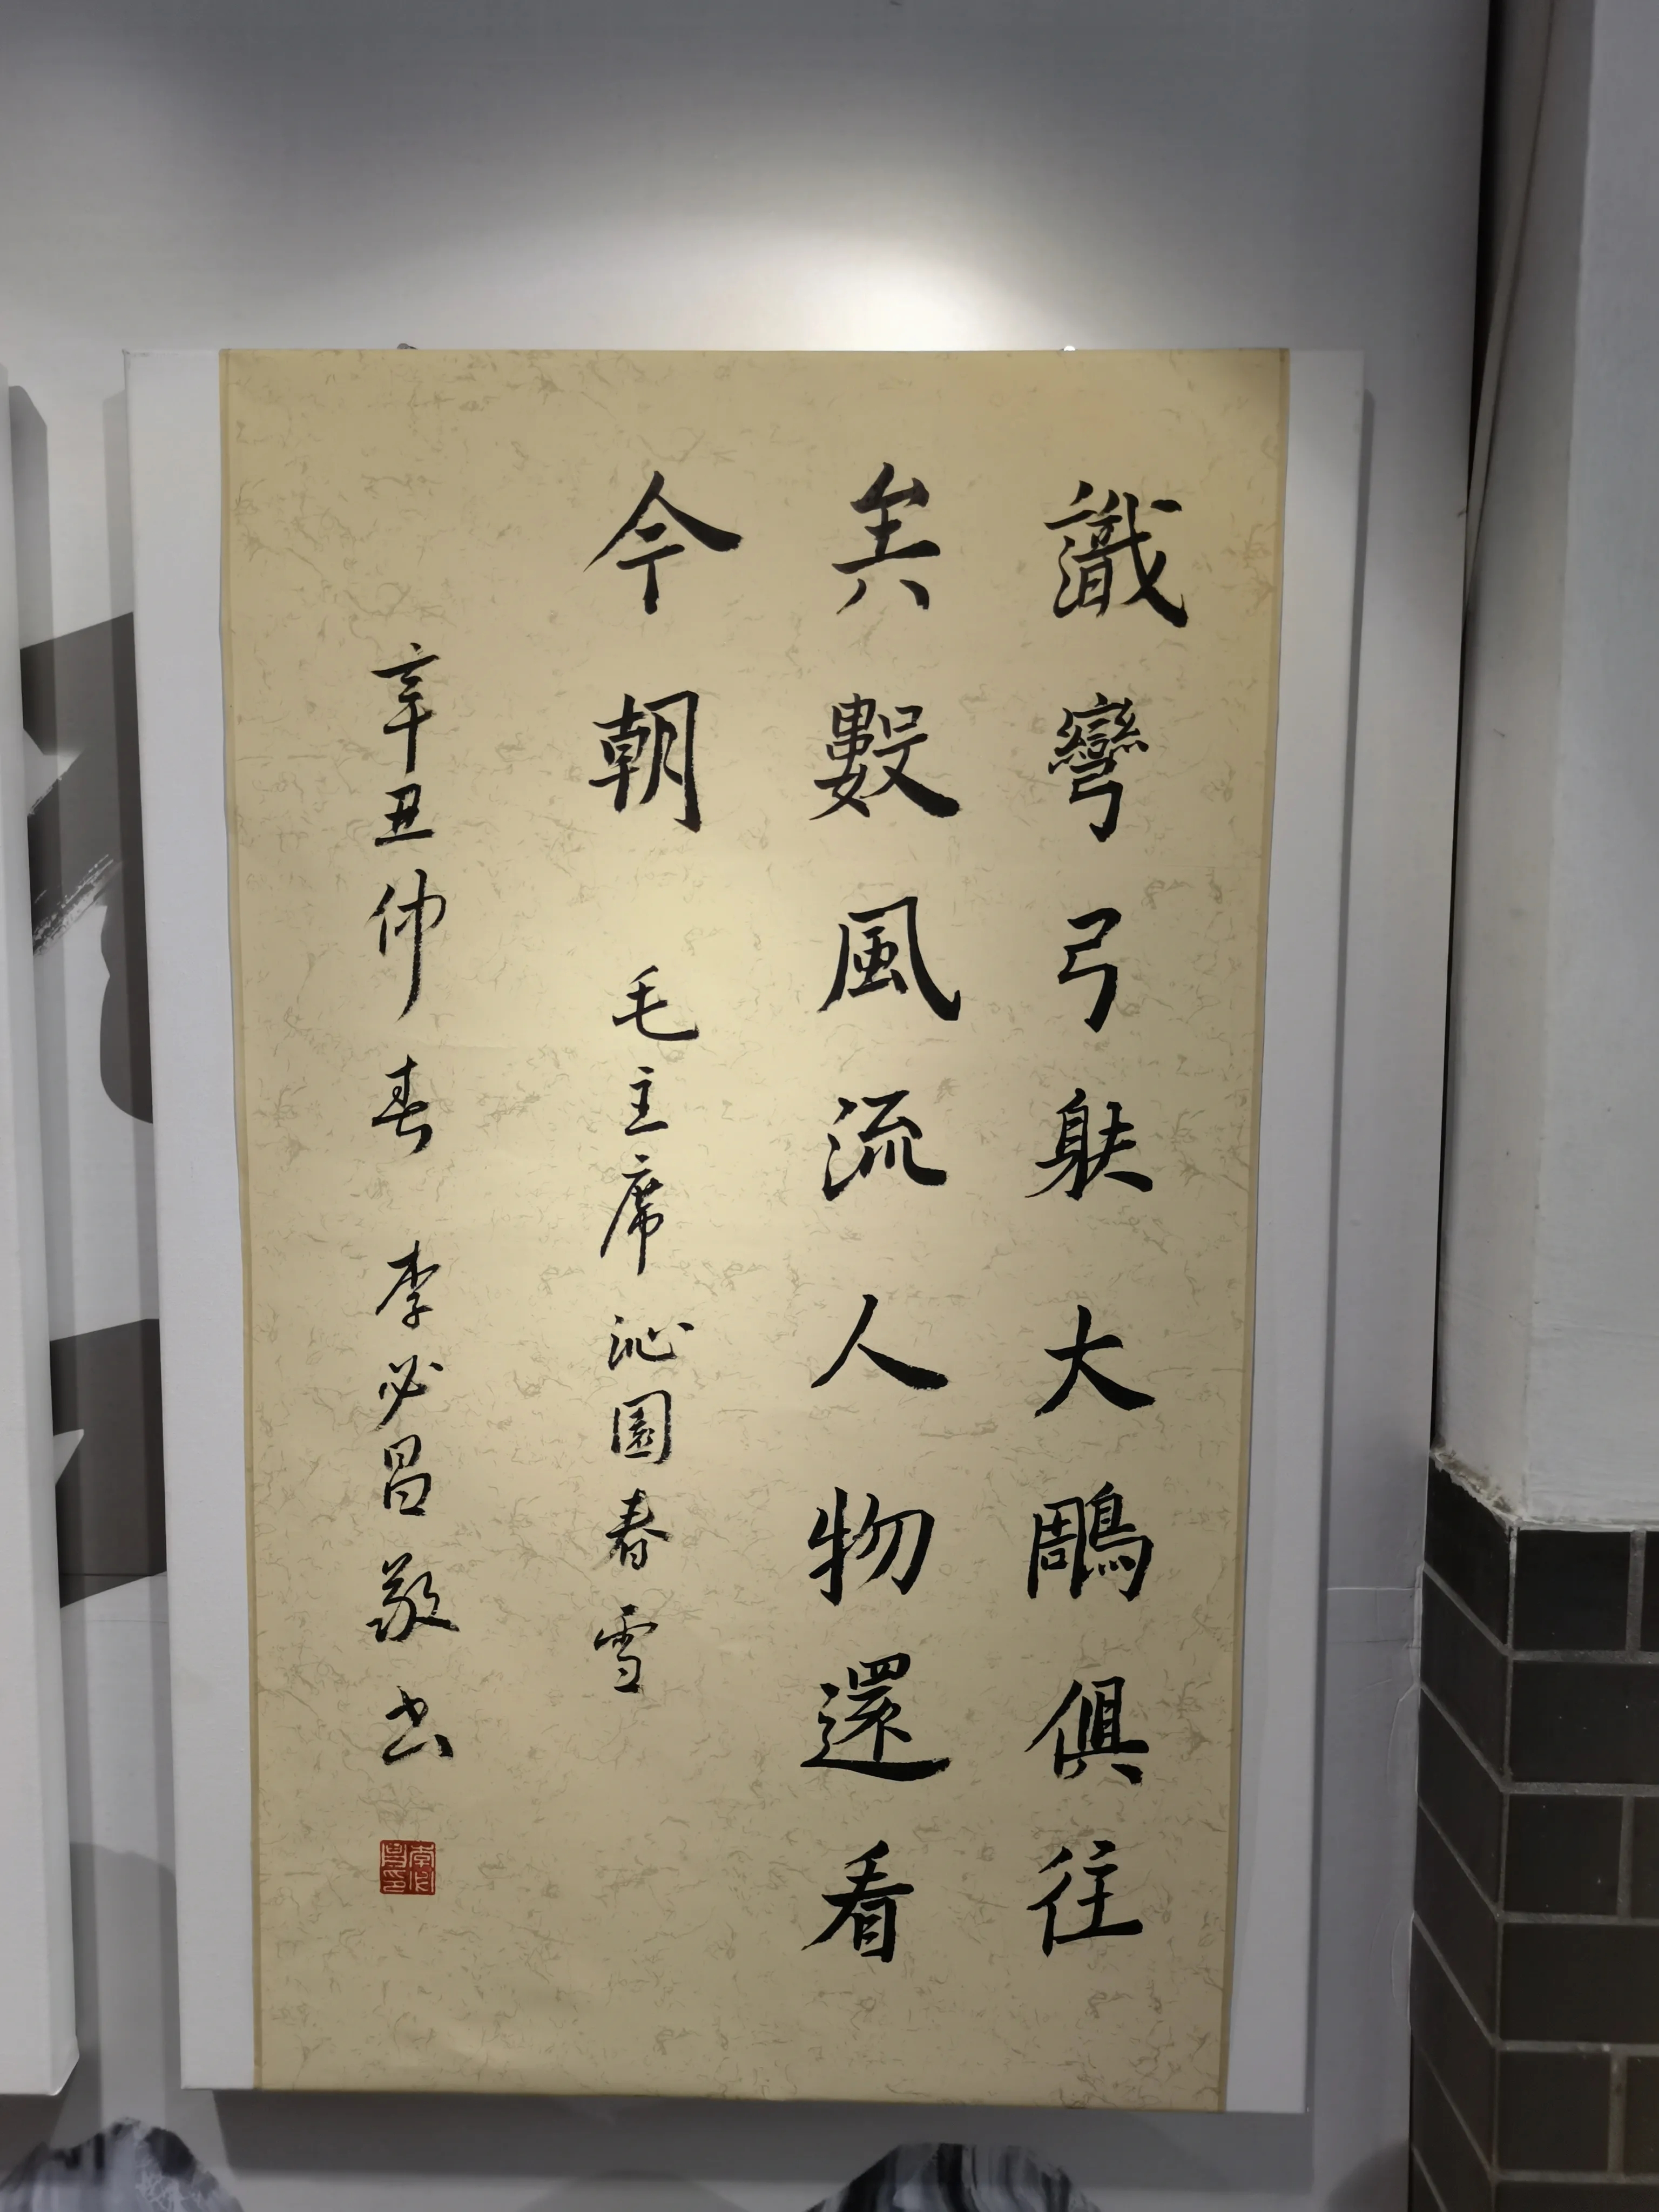 識彎弓䠶大鵰俱往
矣數風流人物還看
今朝 毛主席沁園春雪
辛丑仲春 李必昌敬书
李必昌印